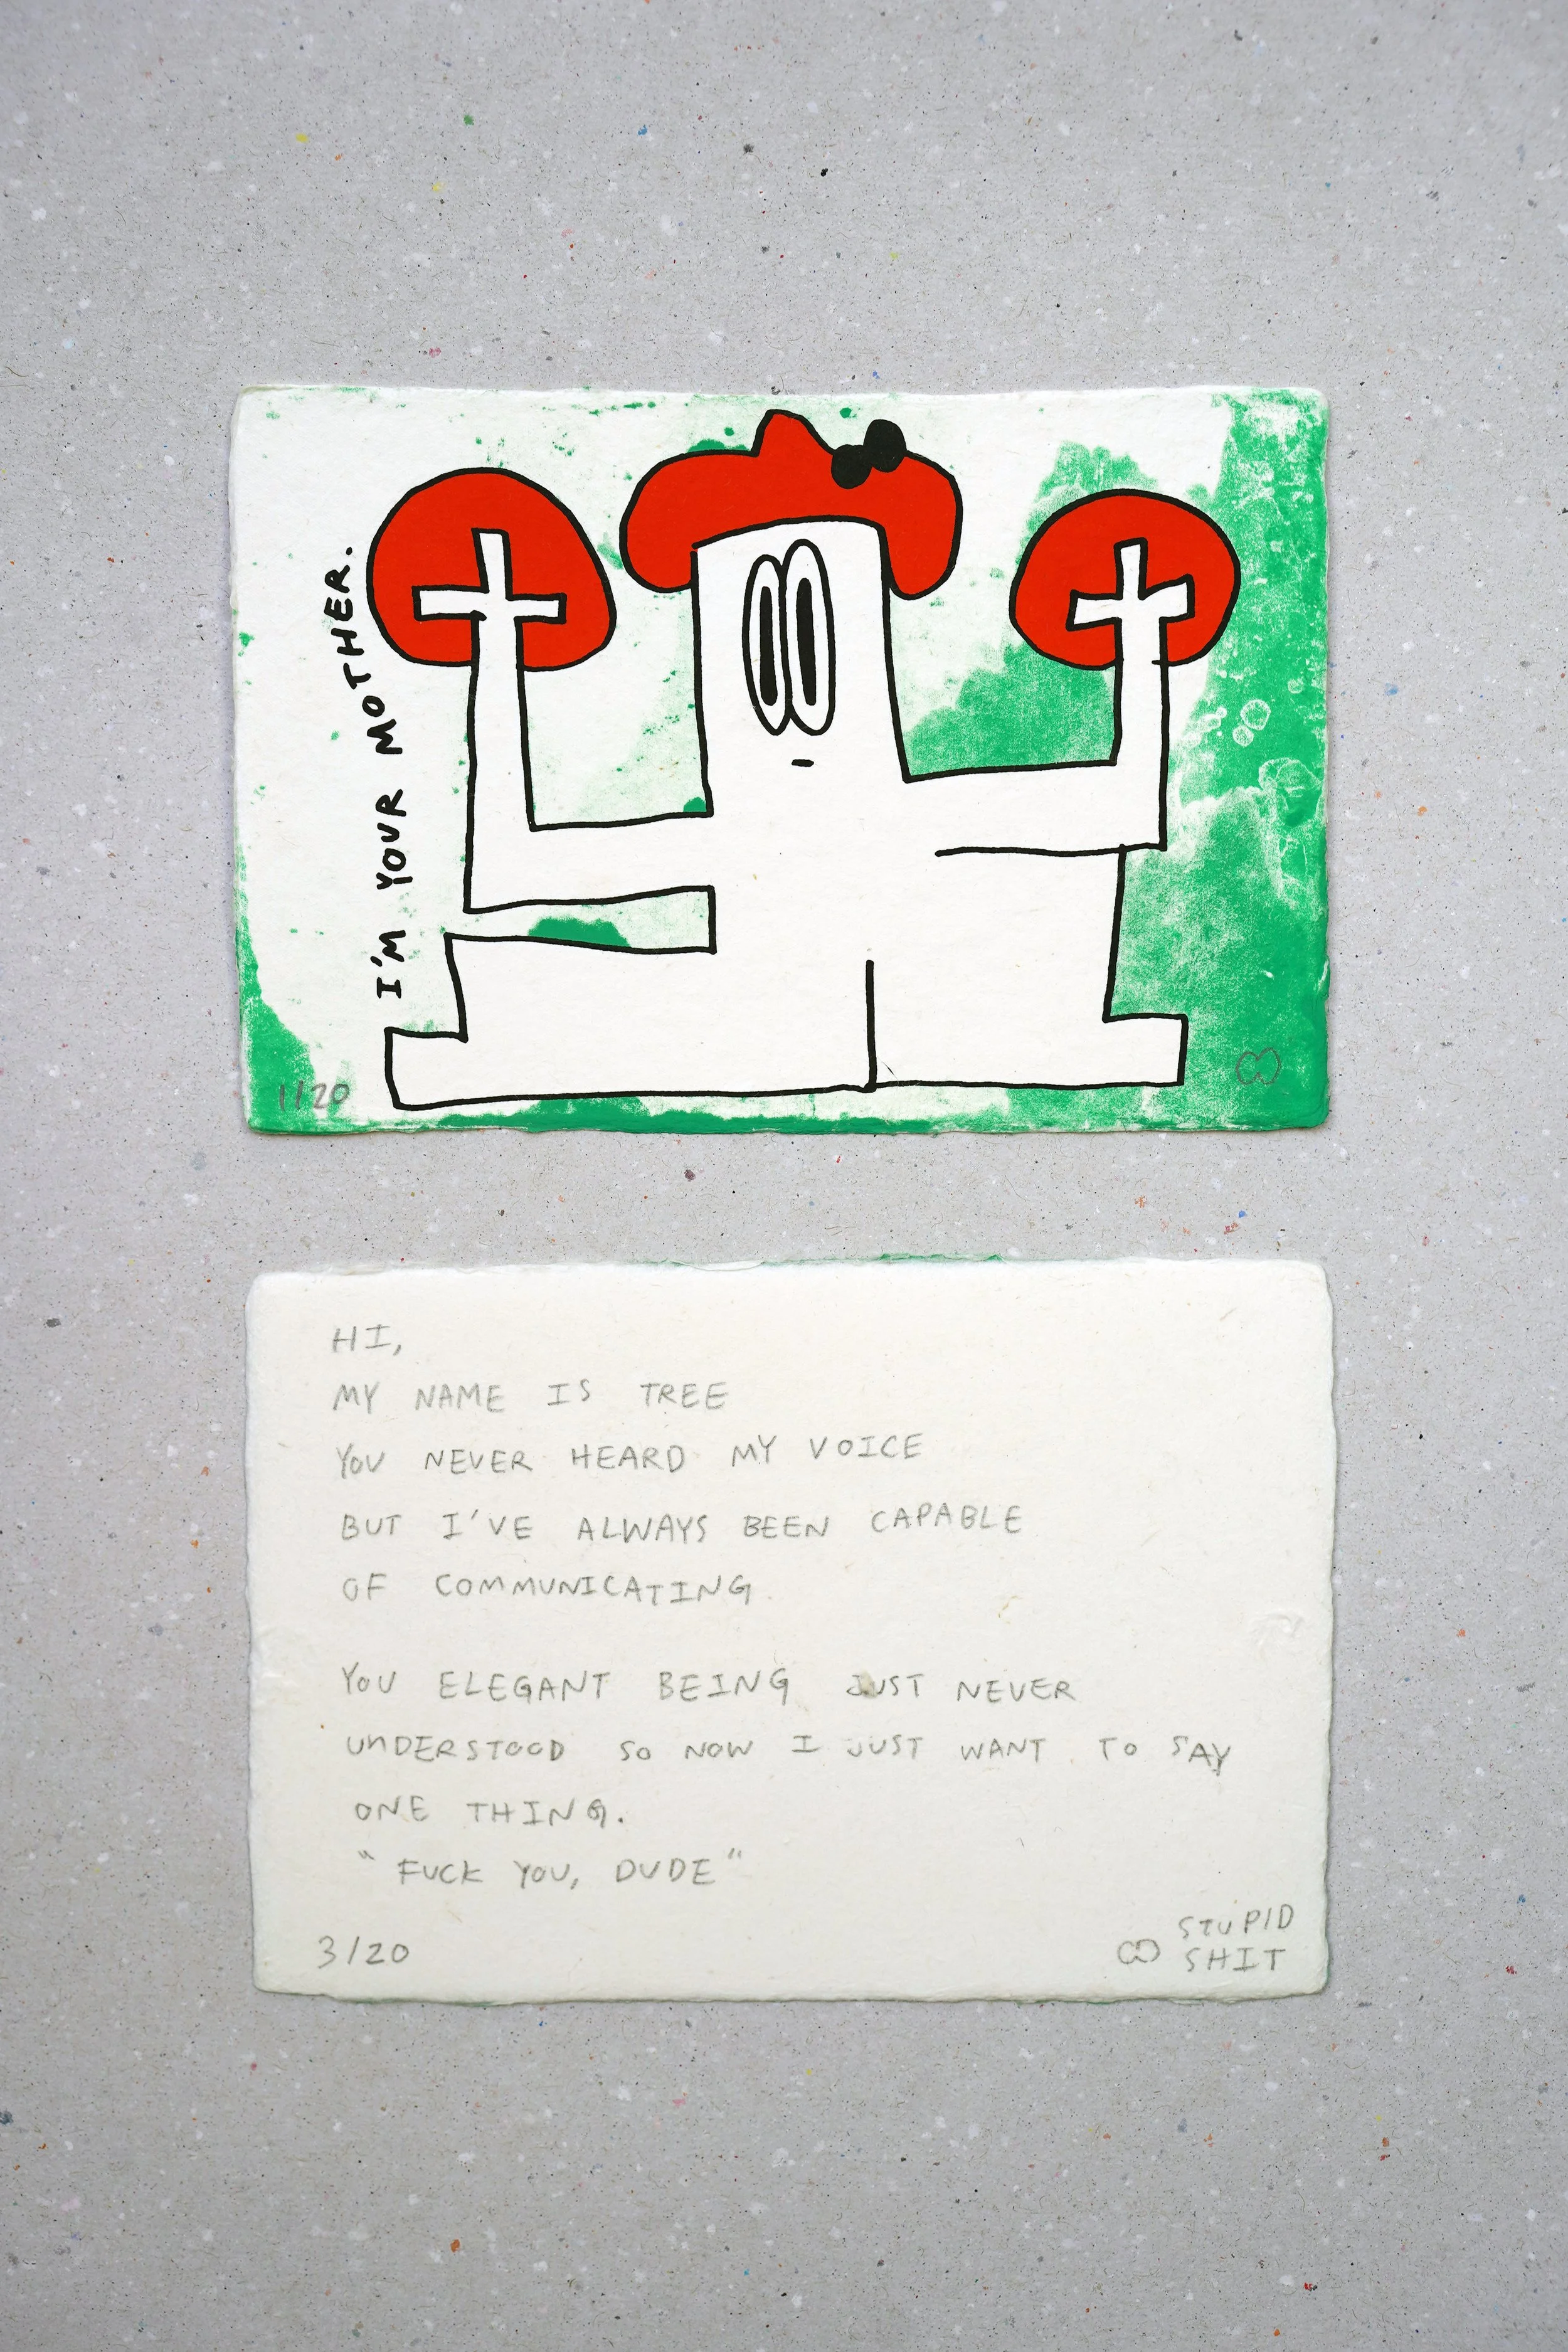 I'M YOUR MOTHER.
1/20
HI,
MY NAME IS TREE
YOU NEVER HEARD MY VOICE
BUT I'VE ALWAYS BEEN CAPABLE
OF COMMUNICATING.
YOU ELEGANT BEING JUST NEVER
UNDERSTOOD SO NOW I JUST WANT TO SAY
ONE THING.
"FUCK YOU, DUDE"
3/20
STUPID
SHIT